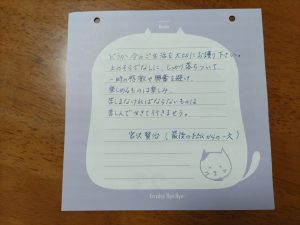 どうか今のご生活を大切にお護り下さい。
上のそらでなしに、しっかり落ちついて、
一時の感激や興奮を避け、
楽しめるものは楽しみ、
苦しまなければならないものは
苦しんで生きて行きませう。
宮沢賢治(最後の手紙からの一文)
Everyday Nyan-Nyan